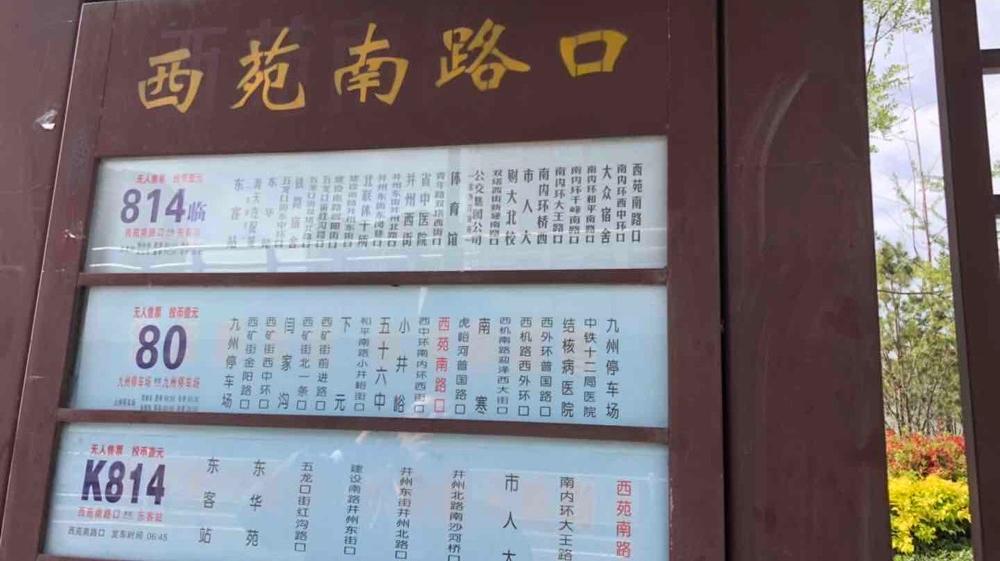 西苑南路口
无人售票 投币壹元
814临
西苑南路口 东客站
东客站
东华苑
建设南路并州东街口
北联体十所
并州东街并州北路口
并州西街
省中医院
青年路双塔西街口
体育馆
公交集团公司
双塔西街新建南路口
财大北校
市人大
南内环桥西
南内环大王路口
南内环千峰南路口
南内环和平南路口
大众宿舍
南内环西中环口
西苑南路口
无人售票 投币壹元
80
九州停车场 九州停车场
九州停车场
西矿街金阳路口
西矿街西中环口
闫家沟
西矿街北一条口
西矿街前进路口
下元
和平南路小井峪街口
五十六中
小井峪
西中环南内环西街口
西苑南路口
虎峪河普国路口
南寒
西机南路勐泽西大街口
西机路西外环口
西外环普国路口
结核病医院
中铁十二局医院
九州停车场
无人售票 投币壹元
K814
西苑南路口 东客站
西苑南路口 发车时间 06:45
东客站
东华苑
五龙口街红沟路口
建设南路并州东街口
并州东街并州北路口
并州北路南沙河桥口
市人大
南内环大王路
西苑南路